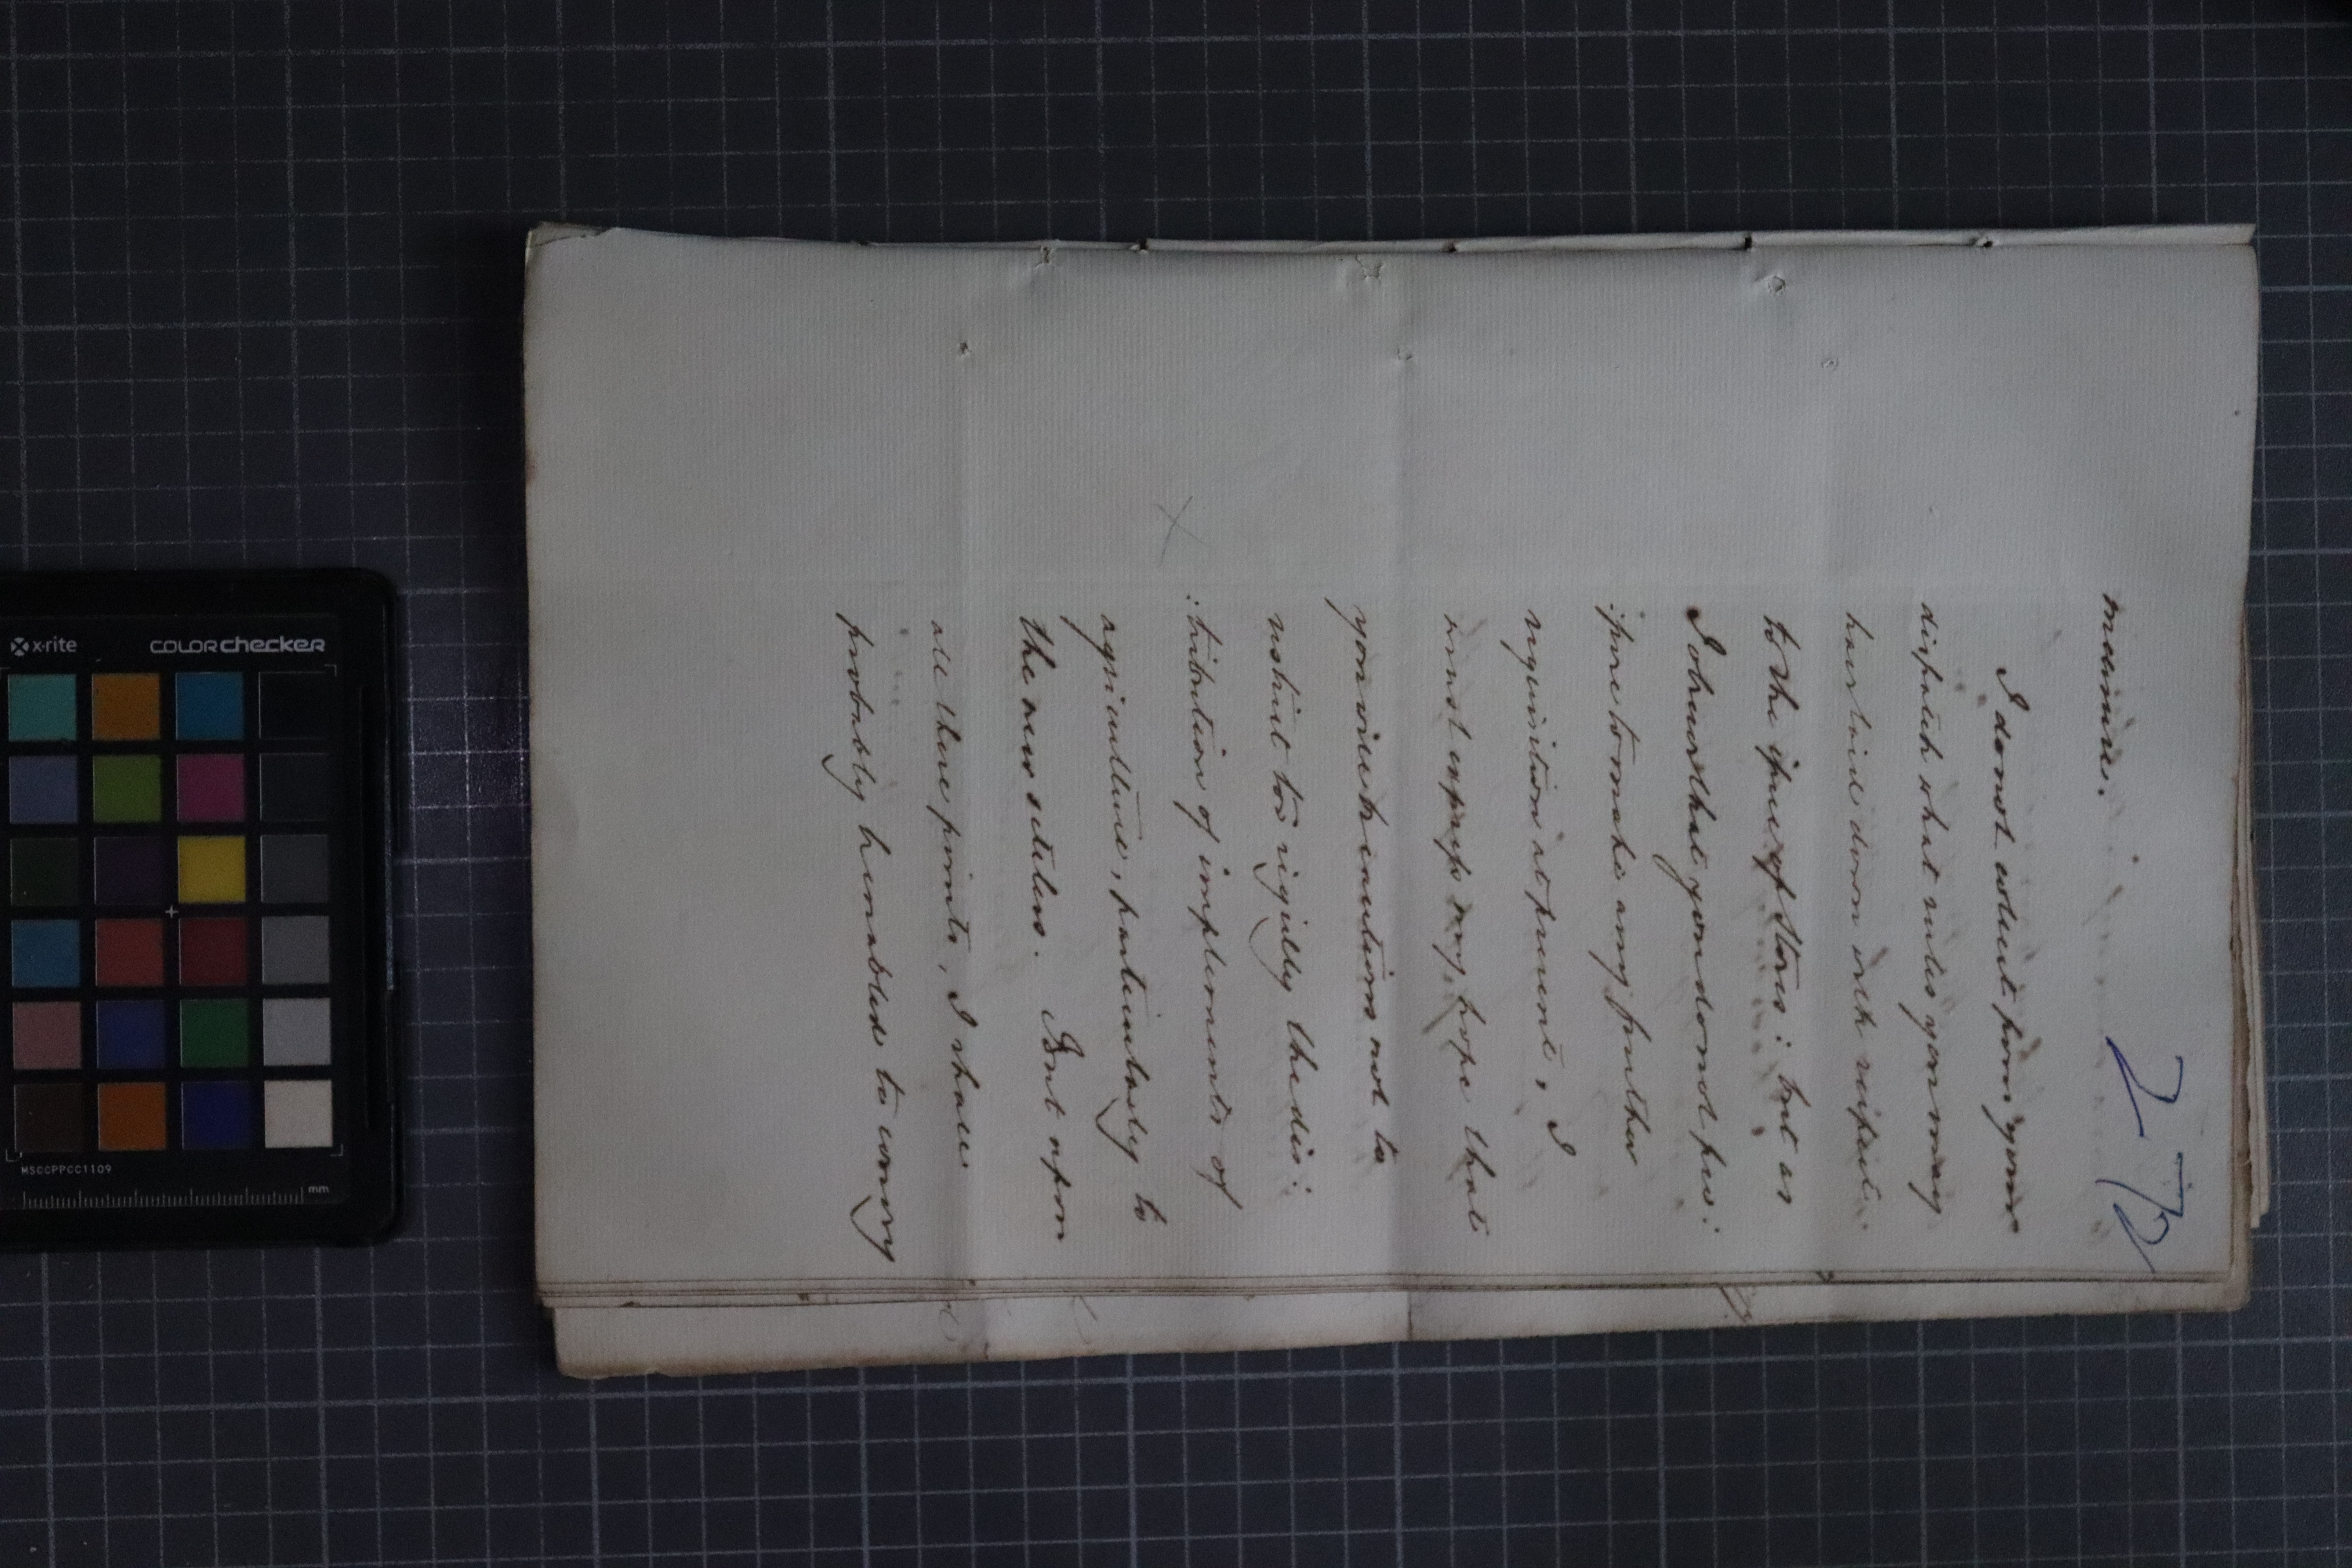 272
measures.
I do not collect from your
dispatch what rules you may
have laid down with respect
to the issue of Stores: but as
I observe that you do not pro:
:pose to make any further
requisition at present, I
must express my hope that
you will be cautious not to
restrict too rigidly the dis:
:tribution of implements of
agriculture, particularly to
the new settlers. But upon
all these points, I shall
probably be enabled to convey
X
x-rite
colorchecker
MSCCPPCC1109
mm